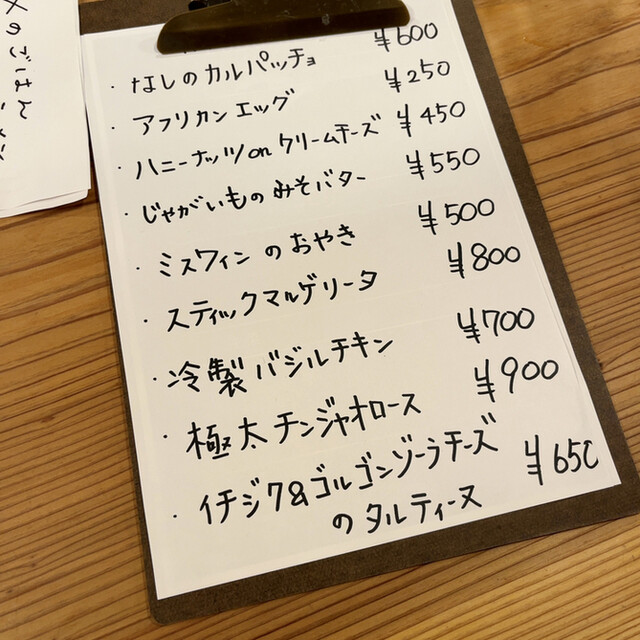 ・なしのカルパッチョ ¥600
・アフリカンエッグ ¥250
・ハニーナッツonクリームチーズ ¥450
・じゃがいものみそバター ¥550
・ミスワインのおやき ¥500
・スティックマルゲリータ ¥800
・冷製バジルチキン ¥700
・極太チンジャオロース ¥900
・イチジク&ゴルゴンゾーラチーズ ¥650
のタルティーヌ
のごはん